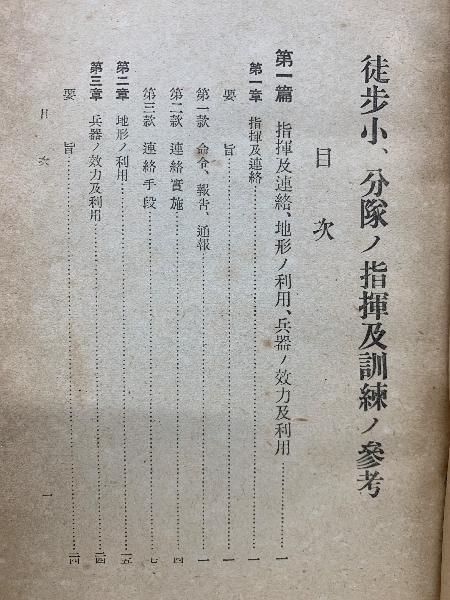 徒步小、分隊ノ指揮及訓練ノ參考
目次
第一篇 指揮及連絡、地形ノ利用、兵器ノ效力及利用……一
第一章 指揮及連絡……一
要旨……一
第一款 命令、報告、通報……一
第二款 連絡實施……四
第三款 連絡手段……七
第二章 地形ノ利用……一五
第三章 兵器ノ效力及利用……二四
要旨……二四
目次 一